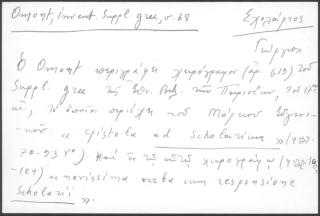 Omont, Invent. Suppl. grec, σ. 68
Σχολάριος
Γεώργιος
Ὁ Omont περιγράφει χειρόγραφον (ἀρ. 619) τοῦ
Suppl. grec τῆς Ἐθν. Βιβλ. τῶν Παρισίων, τοῦ
αἰ., τὸ ὁποῖον περιέχει τοῦ Μάρκου Εὐγενι-
κοῦ « epistola ad Scholarium » (φφ.
70-93 v°). Καὶ ἐκ τοῦ αὐτοῦ χειρογράφου (φφ.
-101) « novissima verba cum responsione
Scholarii ».